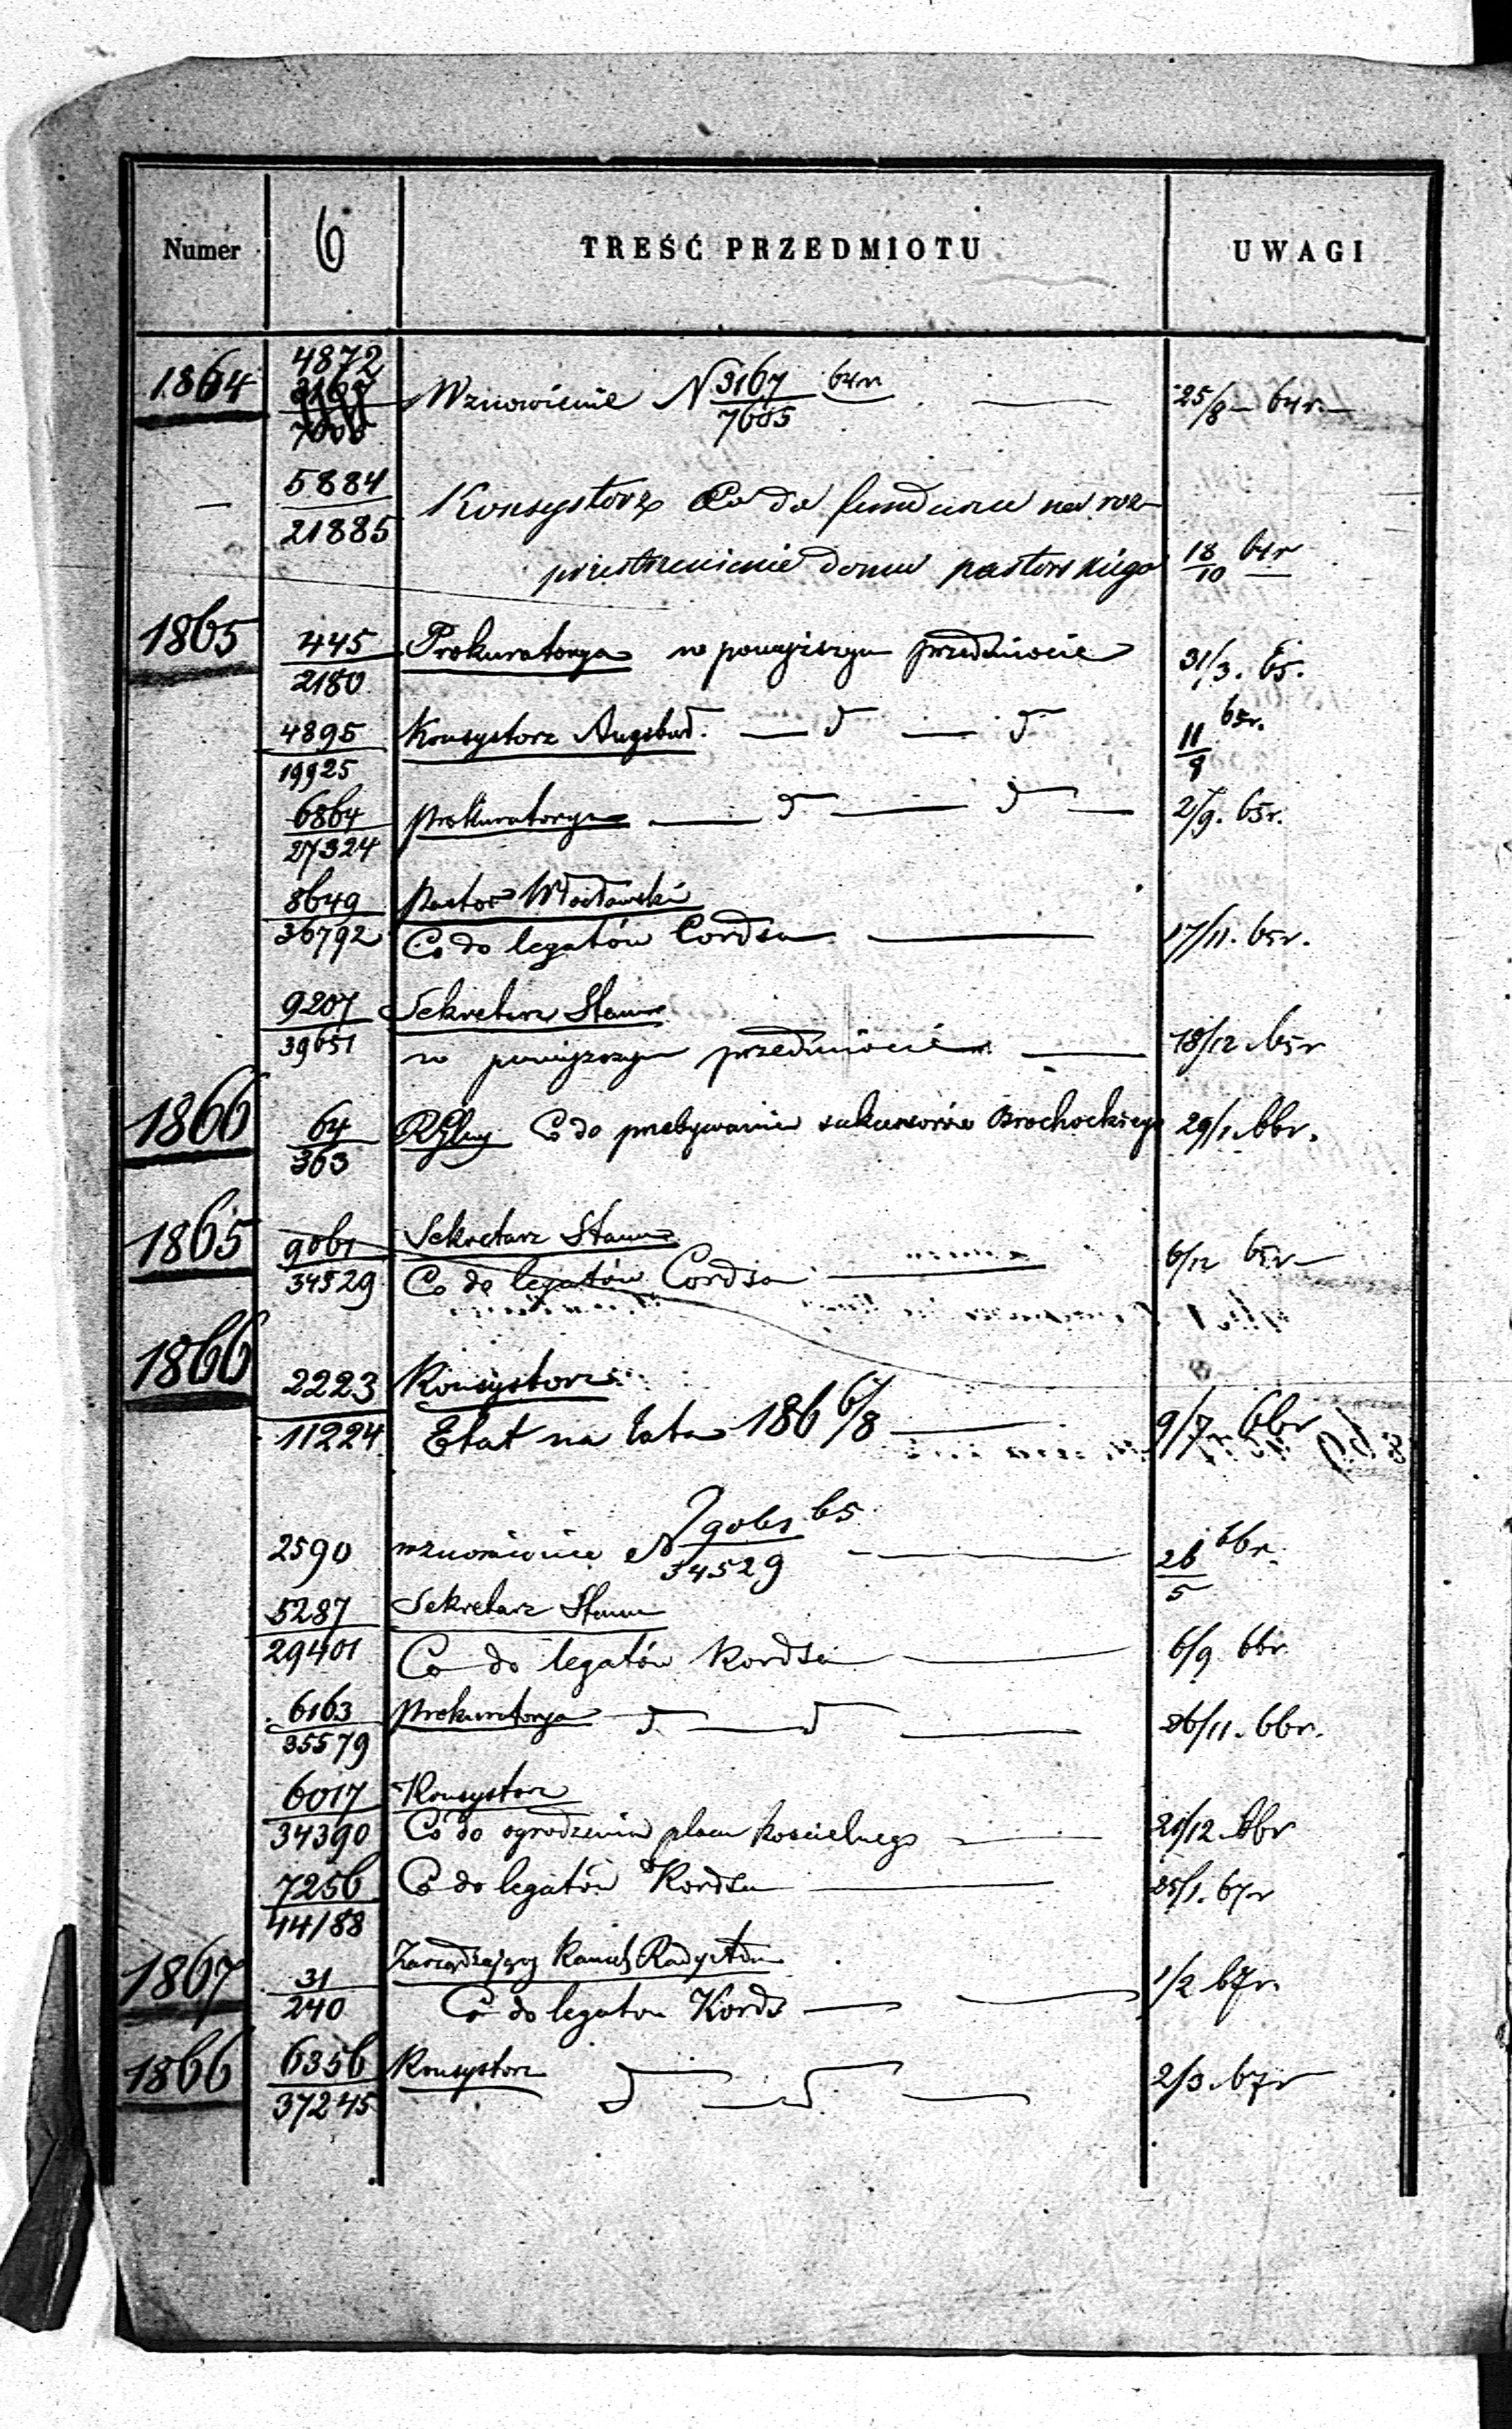 Numer 6 TREŚĆ PRZEDMIOTU UWAGI
1864 4872 Wznowienie N 3167/7605 64r 25/8 64r.
5884/21885 Konsystorz Co do funduszu na roz-
przestrzenienie domu pastorskiego 18/10 64r
1865 445/2180 Prokuratorya w powyższym przedmiocie 31/3. 65.
4895/19925 Konsystorz Augsbur. — d — d 11/8 65r.
6864/27324 Prokuratorya — d — d — 2/9. 65r.
8649/36792 Pastor Włocławski
Co do legatów Cordsa 17/11. 65r.
9207/39651 Sekretarz Stanu
w powyższym przedmiocie 18/12. 65r
1866 64/363 Co do przebywania sukcesorów Brochockiego 29/1. 66r.
1865 9061/34529 Sekretarz Stanu
Co do legatów Cordsa 6/12 65r
1866 2223/11224 Konsystorz
Etat na lata 186 6/8 9/7 66r
2590 wznowienie N 9061/34529 65 26/5 66r.
5287/29401 Sekretarz Stanu
Co do legatów Kordsa 6/9 66r.
6163/35579 Prokuratorya d — d — 26/11. 66r.
6017/34390 Konsystorz
Co do ogrodzenia placu kościelnego 21/12. 66r
7256/44188 Co do legatów Kordsa 25/1. 67r
1867 31/240 Zarządzający
Co do legatow Kords 1/2 67r.
1866 6356/37245 Konsystorz d — d — 2/3. 67r